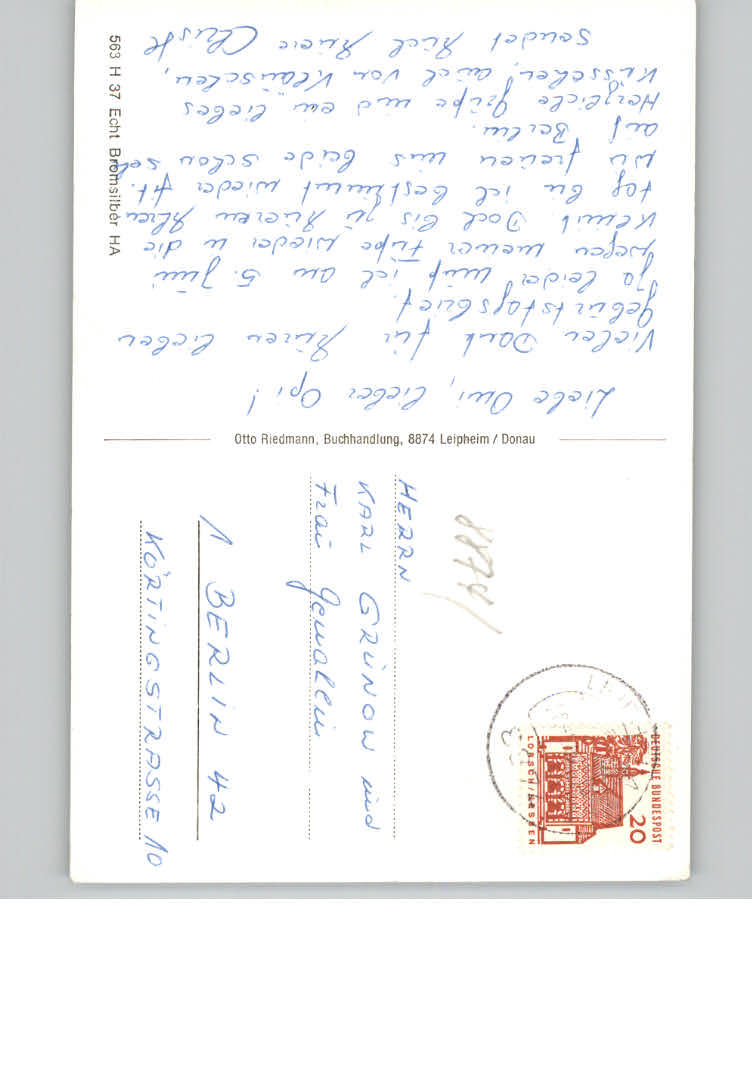 Liebe Omi, lieber Opi!
Vielen Dank für Eueren lieben
Geburtstagsbrief.
Ja leider muß ich am 5. Juni
wegen meiner Füße wieder in die
Klinik. Doch bis zu Eueren Ehren
tag bin ich bestimmt wieder fit.
Wir freuen uns beide schon sehr
auf Berlin.
Herzliche Grüße und ein liebes
Küsschen, auch von Kläuschen,
sendet Euch Euere
563 H 37 Echt Bromsilber HA
Otto Riedmann, Buchhandlung, 8874 Leipheim / Donau
HERRN
KARL GRÜNOW und
Frau Gemahlin
1 BERLIN 42
KÖRTINGSTRASSE 10
8874
DEUTSCHE BUNDESPOST
20
LORSCH/HESSEN